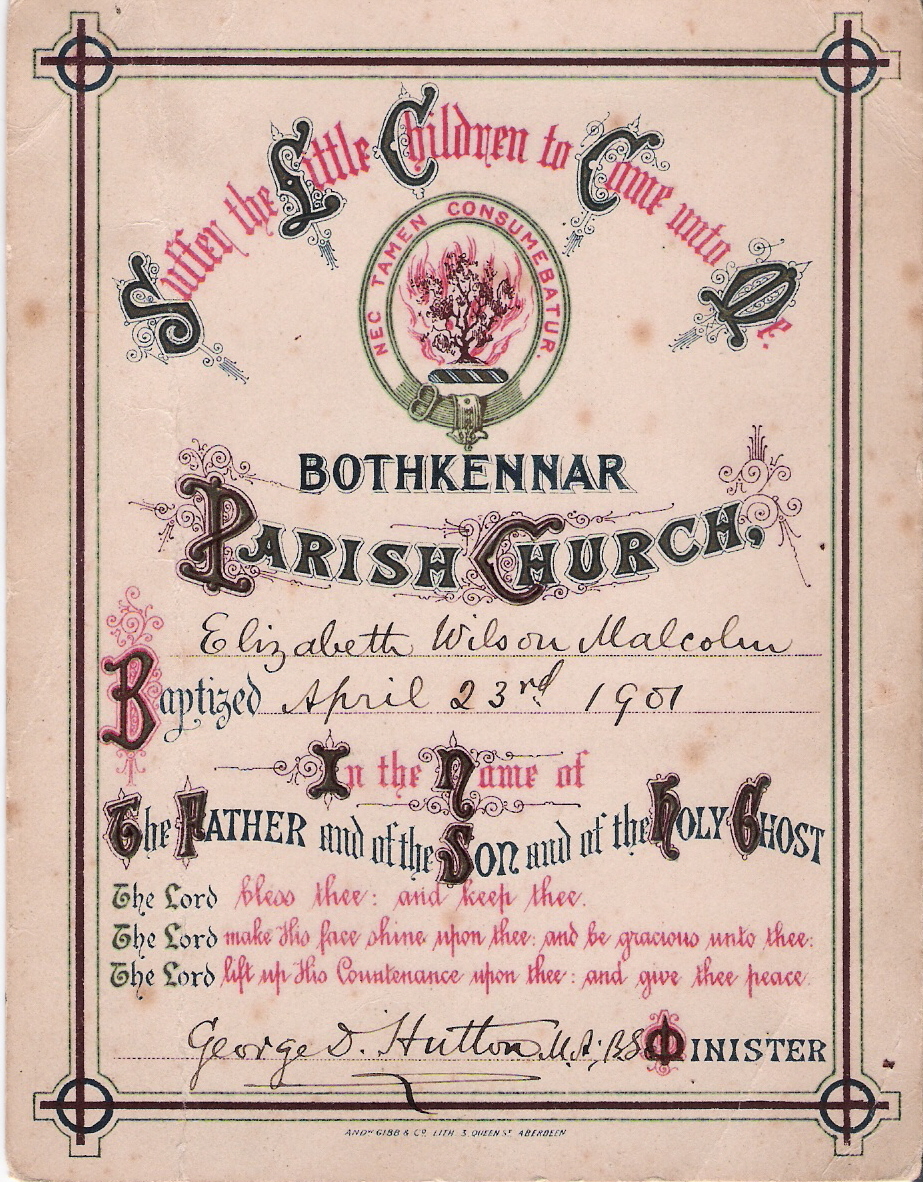 Suffer the Little Children to Come unto Me.
NEC TAMEN CONSUMEBATUR.
BOTHKENNAR
PARISH CHURCH,
Elizabeth Wilson Malcolm
Baptized April 23rd 1901
In the Name of
The FATHER and of the SON and of the HOLY GHOST
The Lord bless thee: and keep thee.
The Lord make His face shine upon thee: and be gracious unto thee:
The Lord lift up His Countenance upon thee: and give thee peace.
George D. Hutton M.A; B.D MINISTER
ANDW GIBB & CO. LITH 3 QUEEN ST ABERDEEN